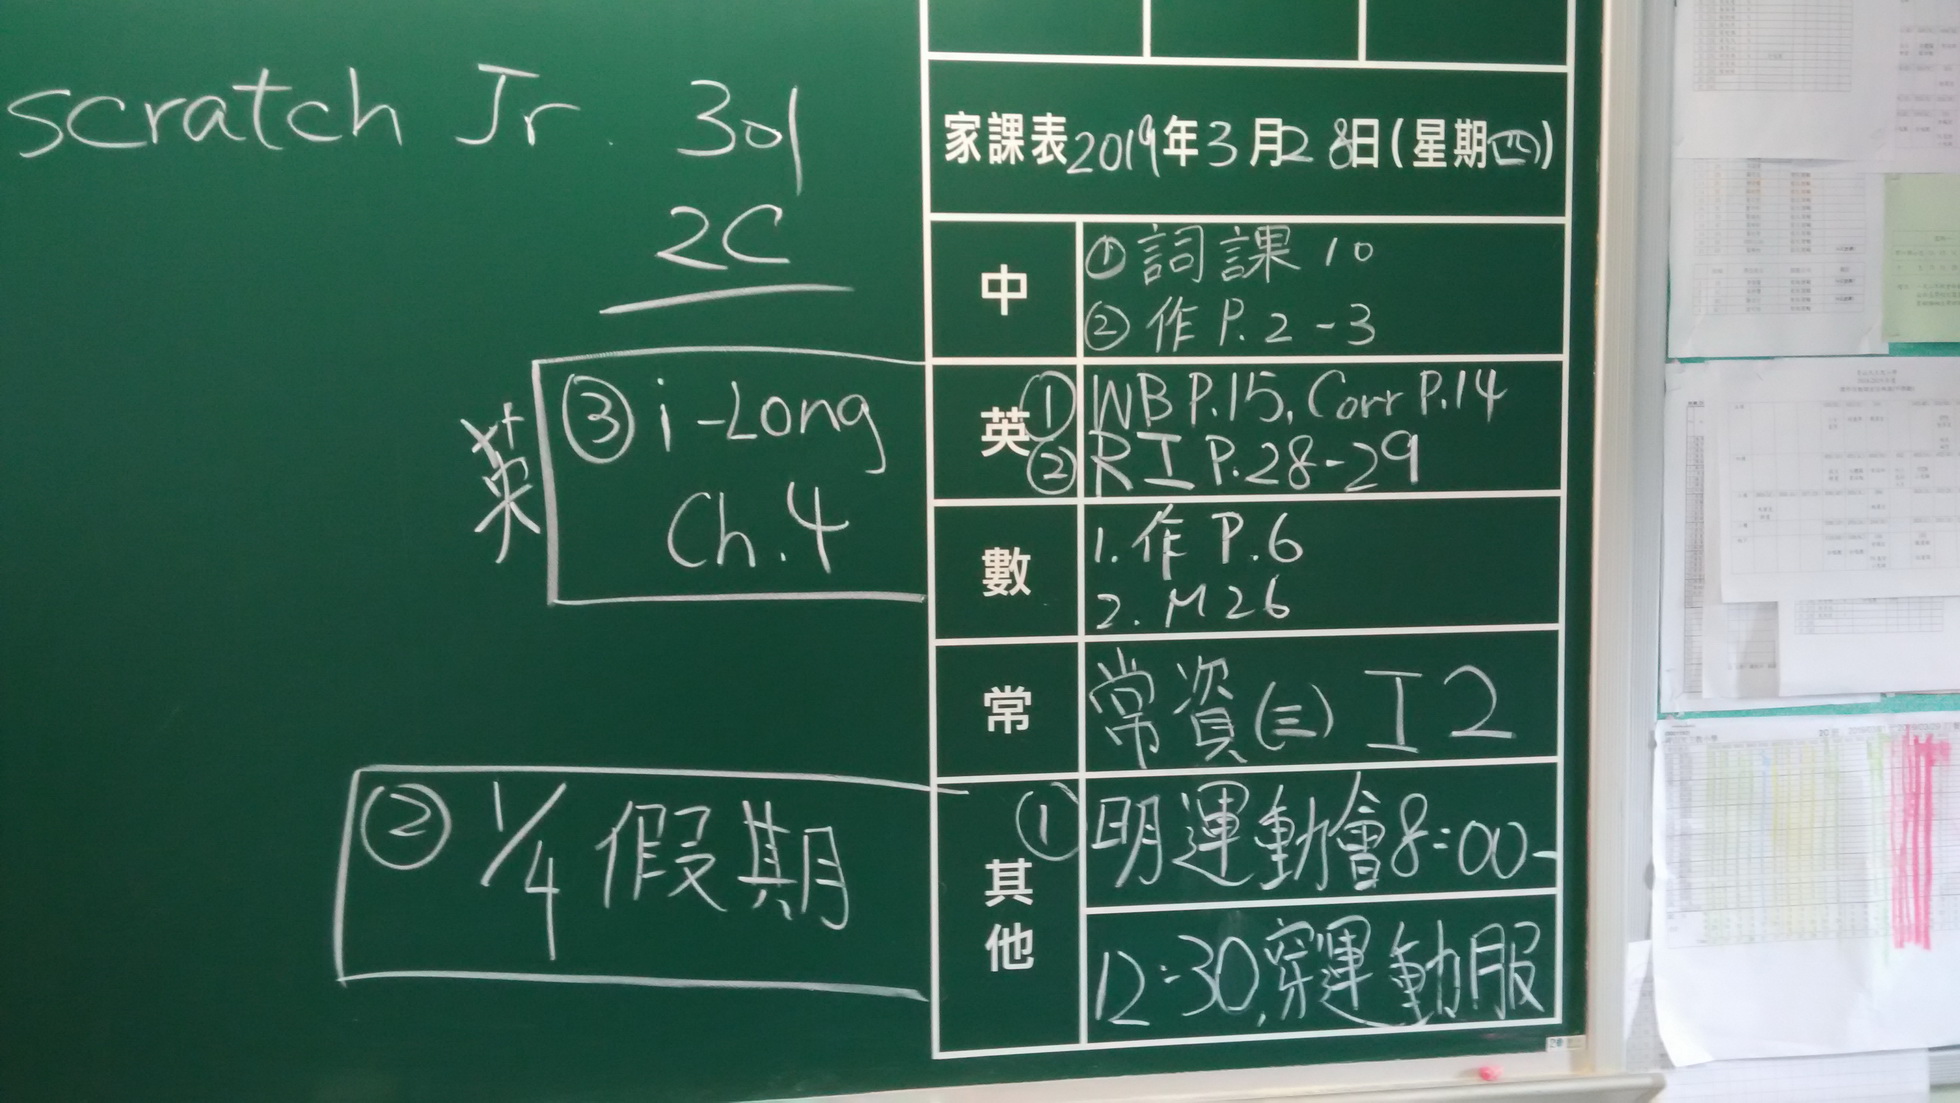 scratch Jr. 301
2C
家課表2019年3月28日(星期四)
中
① 詞課 10
② 作 P.2-3
英
① WB P.15, Corr P.14
② RI P.28-29
英
③ i-Long
Ch.4
數
1. 作 P.6
2. M26
常
常資(三) I2
其他
① 明運動會8:00-
12:30,穿運動服
② 1/4 假期